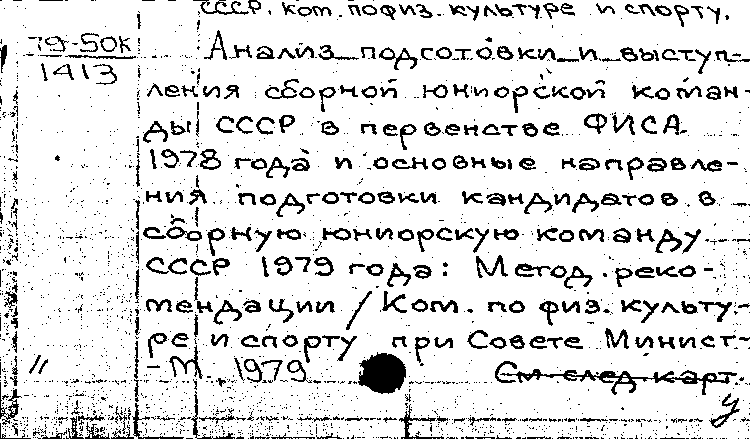 СССР. Ком. по физ. культуре и спорту.
79-50к
1413
Анализ подготовки и выступ-
ления сборной юниорской коман-
ды СССР в первенстве ФИСА
1978 года и основные направле-
ния подготовки кандидатов в
сборную юниорскую команду
СССР 1979 года: Метод. реко-
мендации / Ком. по физ. культу-
ре и спорту при Совете Минист-
- М. 1979
См след карт.
у